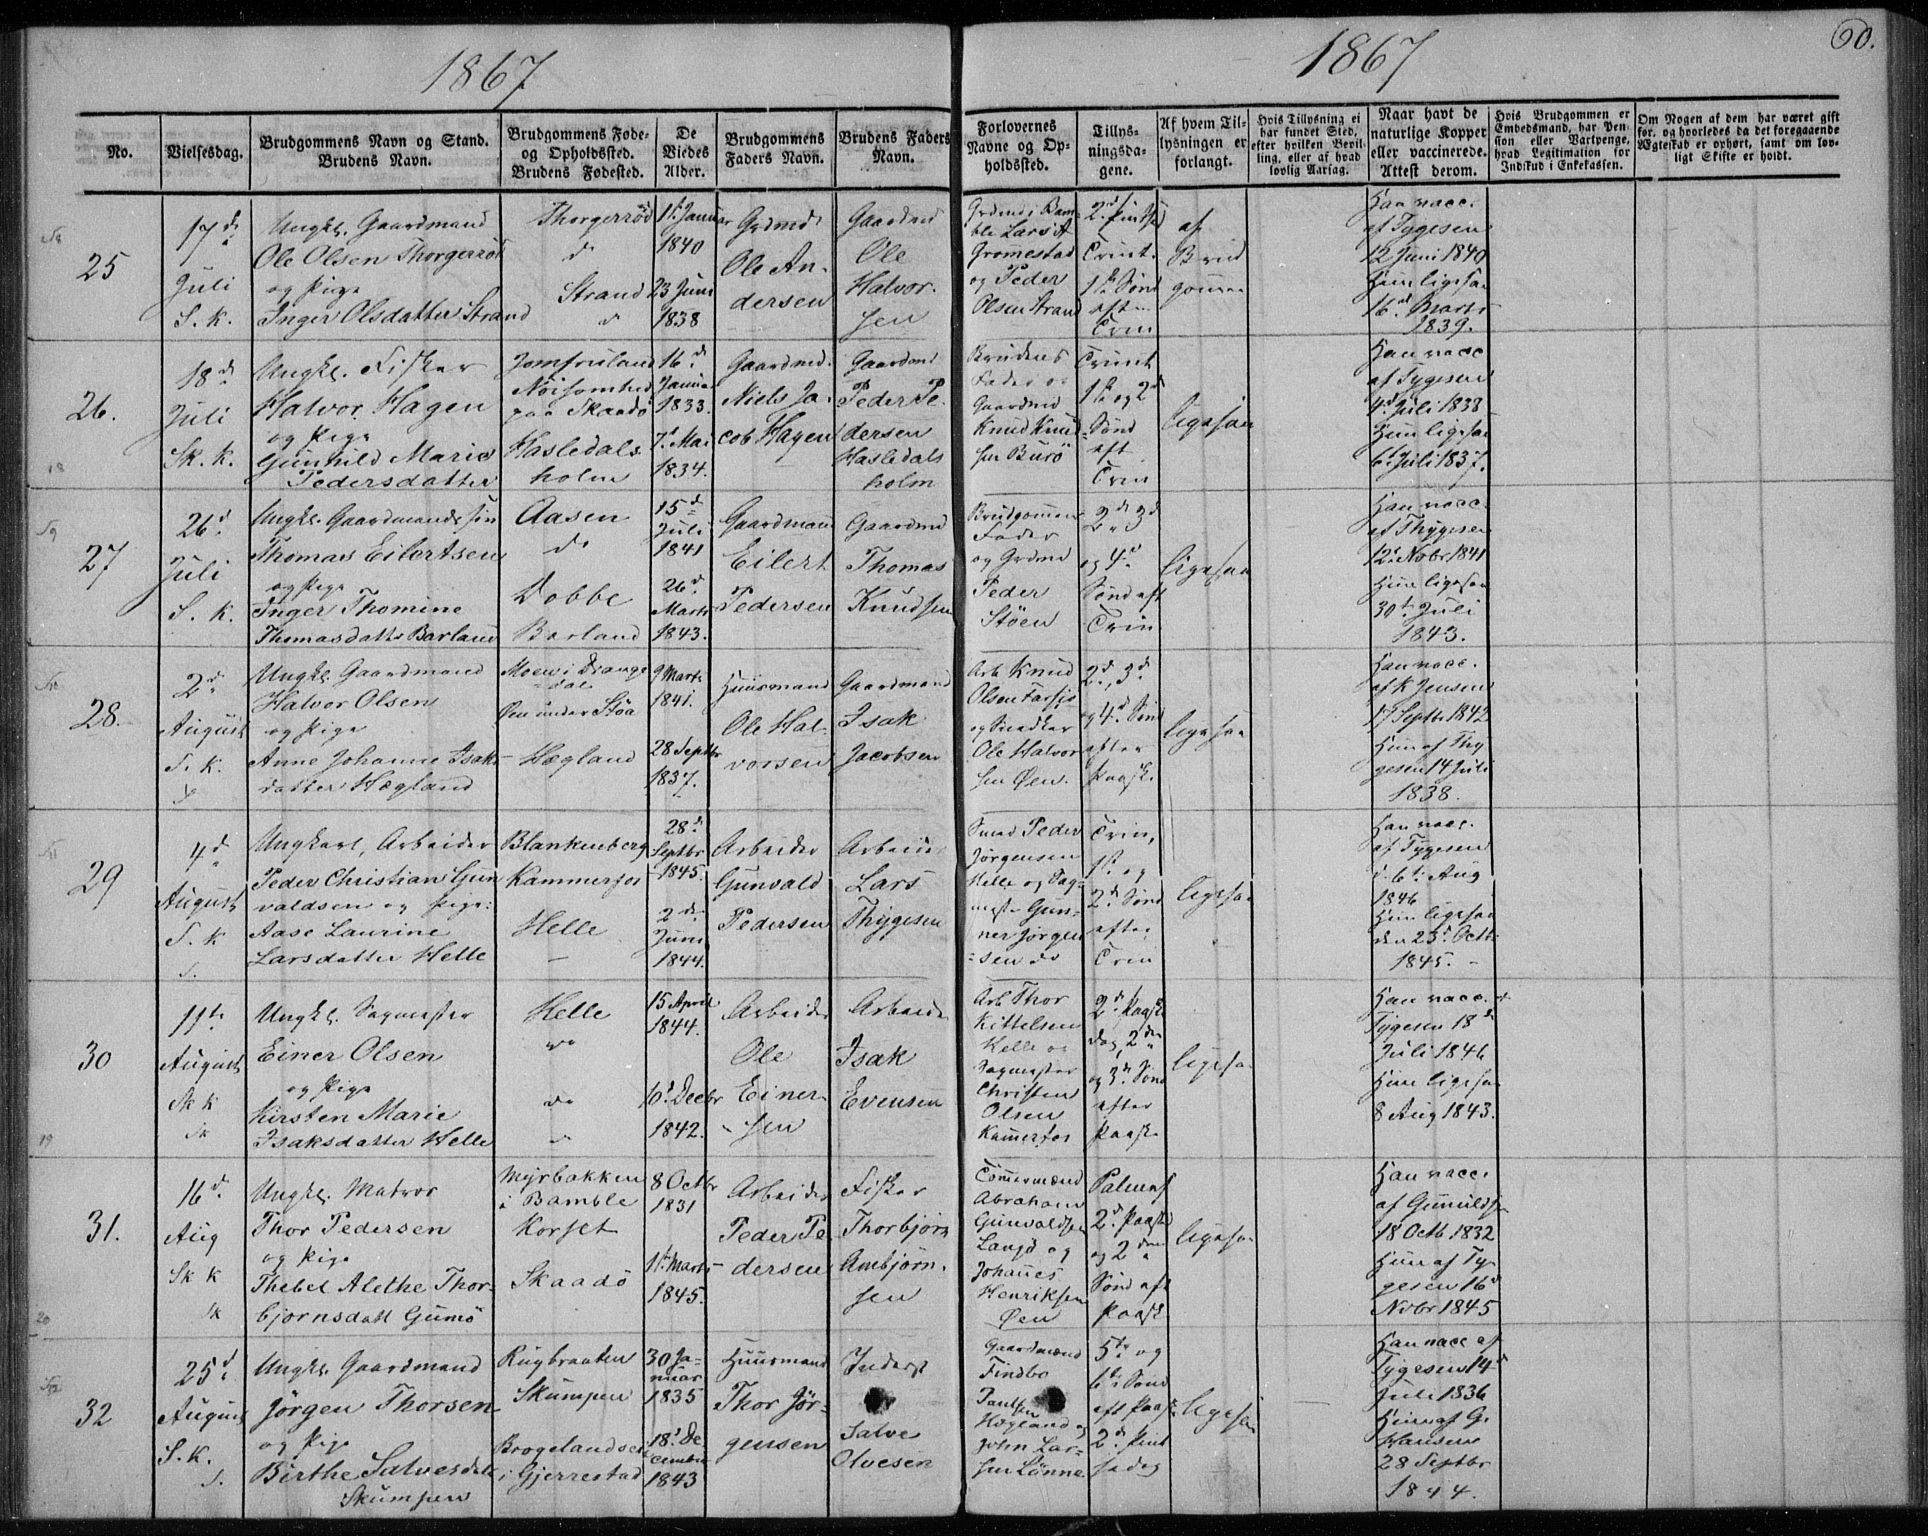 1867
1867
60.
No.
Vielsesdag.
Brudgommens Navn og Stand.
Brudens Navn.
Brudgommens Føde-
og Opholdssted.
Brudens Fødested.
De
Viedes
Alder.
Brudgommens
Faders Navn.
Brudens Faders
Navn.
Forlovernes
Navne og Op-
holdssted.
Tillys-
ningsda-
gene.
Af hvem Til-
lysningen er
forlangt.
Hvis Tillysning ei
har fundet Sted,
efter hvilken Bevil-
ling, eller af hvad
lovlig Aarsag.
Naar havt de
naturlige Kopper
eller vaccinerede.
Attest derom.
Hvis Brudgommen er
Embedsmand, har Pen-
sion eller Vartpenge,
hvad Legitimation for
Indskud i Enkekassen.
Om Nogen af dem har været gift
før, og hvorledes da det foregaaende
Ægteskab er ophørt, samt om lov-
ligt Skifte er holdt.
25
17d
Juli
S. k.
Ungkl. Gaardmand
Ole Olsen Thorgerrød
og Pige
Inger Olsdatter Strand
Thorgerrød
do
Strand
do
1st Januar
1840
23 Juni
1838
Grdmd
Ole An-
dersen
Gaardmd
Ole
Halvor-
sen
Grdmd i Bam-
ble Lars A
Gromestad
og Peder
Olsen Strand
2d Pintsed
Trinit.
1ste Sønd
efter
Trin
af
Brud
gommen
Han vacc.
af Tygesen
12 Juni 1840
Hun ligesaa
16d Marts
1839.
26.
18d
Juli
Sk. k.
18
Ungkl. Fisker
Halvor Hagen
og Pige
Gunhild Marie
Pedersdatter
Jomfruland
Nøisomhed
paa Skaadø
Hasledals
holm
16d
Janua
1833.
7d Mai
1834.
Gaardmd.
Niels Ja-
cob Hagen
Gaardmd
Peder Pe-
dersen
Hasledals
holm
Brudens
Fader og
Gaardmd
Knud Knud-
sen Burø
Trinit
1ste og 2d
Sønd
eft
Trin
ligesaa
Han vacc
af Tygesen
4d Juli 1838
Hun ligesaa
6t Juli 1837.
27
26d
Juli
S. k.
Ungkl. Gaardmandssøn
Thomas Eilertsen
og Pige
Inger Thomine
Thomasdattr Barland
Aasen
do
Dobbe
Barland
15d
Juli
1841
26d
Marts
1843.
Gaardmand
Eilert
Pedersen
Gaardmd
Thomas
Knudsen
Brudgommens
Fader
og Grdmd
Peder
Støen
2d 3d
og 4d
Sønd eft
Trin
ligesaa
Han vacc.
af Thygesen
12t Novbr 1841
Hun ligesaa
30t Juli
1843.
28.
2d
August
S. k.
Ungkl. Gaardmand
Halvor Olsen
og Pige
Anne Johanne Isaks-
datter Hægland
Moen i Drange
dal
Øen under Støa
Hægland
9 Marts
1841.
28 Septbr
1837.
Huusmand
Ole Hal-
vorsen
Gaardmand
Isak
Jacobsen
Arb Knud
Olsen Farsjø
og Snedker
Ole Halvor
sen Øen.
2d, 3d
og 4d Sønd
efter
Paaske
ligesaa
Han vacc.
af K Jensen
17 Septbr 1842
Hun af Thy
gesen 14 Juli
1838.
29
4d
August
S. k
S.
Ungkarl, Arbeider
Peder Christian Gun
valdsen og Pige:
Aase Laurine
Larsdatter Helle
Blankenberg
Kammerfos
Helle
28d
Septbr
1845.
2den
Juni
1844.
Arbeider
Gunvald
Pedersen
Arbeider
Lars
Thygesen
Smed Peder
Jørgensen
Helle og Sag-
mest Gun-
ner Jørgen
-sen do
Trin,
1ste og
2d Sønd
efter
Trin
ligesaa
Han vacc.
af Tygesen
d. 6t Aug
1846
Hun ligesaa
den 25d Octb
1845.
30
11te
August
Sk k
Sk
19
Ungkl. Sagmester
Einer Olsen
og Pige
Kirsten Marie
Isaksdatter Helle
Helle
do
do
15 April
1844.
16d Decbr
1842.
Arbeider
Ole
Einer-
sen
Arbeider
Isak
Evensen
Arb Thor
Kittelsen
Helle og
Sagmester
Christen
Olsen
Kamerfos
2d Paaske
dag, 2den
og 3d Sønd
efter
Paaske
ligesaa
Han vacc.
Tygesen 18d
Juli 1846
Hun ligesaa
8 Aug 1843.
31.
16d
Aug
Sk k
Sk
20
Ungkl. Matros
Thor Pedersen
og Pige
Thebel Alethe Thor-
bjørnsdatt Gumø
Myrbakken
i Bamble
Korset
Skaadø
8 Octbr
1831
11t Marts
1845.
Arbeider
Peder Pe-
dersen
Fisker
Thorbjørn
Ambjørn-
sen
Tømmermand
Abraham
Gunvaldsen
Langø og
Johannes
Henriksen
Øen
Palmesø
2d Paaske
og 2den
Sønd eft
Paaske
ligesaa
Han vacc.
af Gunuldsen
18 Octb 1832
Hun af Ty-
gesen 16d
Novbr 1845
32
25d
August
S. k.
S.
Ungkl. Gaardmand
Jørgen Thorsen
og Pige
Birthe Salvesdatt
Skumpen
Rugbraaten
Skumpen
Brøgelandseie
i Gjerrestad
30 Ja-
nuar
1835
18d De-
cember
1843
Huusmand
Thor Jør-
gensen
Inderst
Salve
Olvesen
Gaardmand
Findbo
Paulsen
Hægland og
John Lar-
sen Lønne
5te og
6te Sønd
eft Paask
2d Pint
sedag
ligesaa
Han vacc af
Tygesen 14d
Juli 1836
Hun af G.
Hansen
28 Septbr
1844.